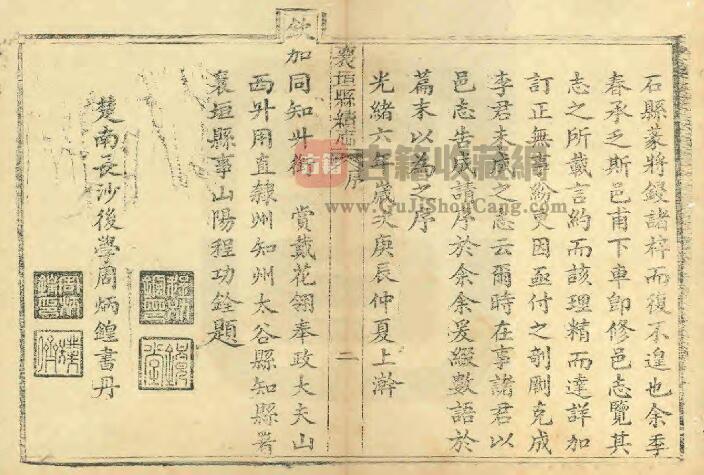 石縣蒙將鋟諸梓而復不遑也余季
春承乏斯邑甫下車即修邑志覽其
志之所載言約而該理精而達詳加
訂正無事紛更因亟付之剞劂克成
李君未成之志云爾時在事諸君以
邑志告成請序於余余爰綴數語於
篇末以為之序
光緒六年歲次庚辰仲夏上澣
襄垣縣續志
序
二
欽
加同知升銜 賞戴花翎奉政大夫山
西升用直隸州知州太谷縣知縣署
襄垣縣事山陽程功銓題
楚南長沙後學周炳鍠書丹
古籍收藏網
www.GuJiShouCang.com